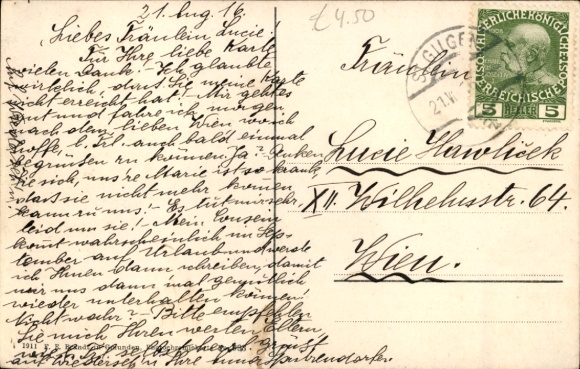 21. Aug. 16.
£4.50
Liebes Fräulein Lucie!
Für Ihre liebe Karte
vielen Dank! Ich glaubte
wirklich, dass Sie meine Karte
nicht erreicht hat! Mir geht es
gut und fahre ich morgen
nach dem lieben Wien wo ich
hoffe l. Frl. auch bald einmal
begrüssen zu können. Ja? Denken
Sie sich, unsre Marie ist so krank,
dass sie nicht mehr kommen
kann zu uns! Es tut mir sehr
leid um sie! Mein Cousin
kommt wahrscheinlich im Sep-
tember auf Urlaub und werde
ich Ihnen dann schreiben, damit
wir uns dann mal gemütlich
wieder unterhalten können,
Nicht wahr? Bitte empfehlen
Sie mich Ihren werten Eltern,
auf Wiedersehen Ihre
ST. GILGEN
KAISERLICHE KÖNIGLICHE
ÖSTERREICHISCHE POST
5 HELLER 5
Fräulein
Lucie Hawliček
XII. Wilhelmstr. 64.
Wien.
1911